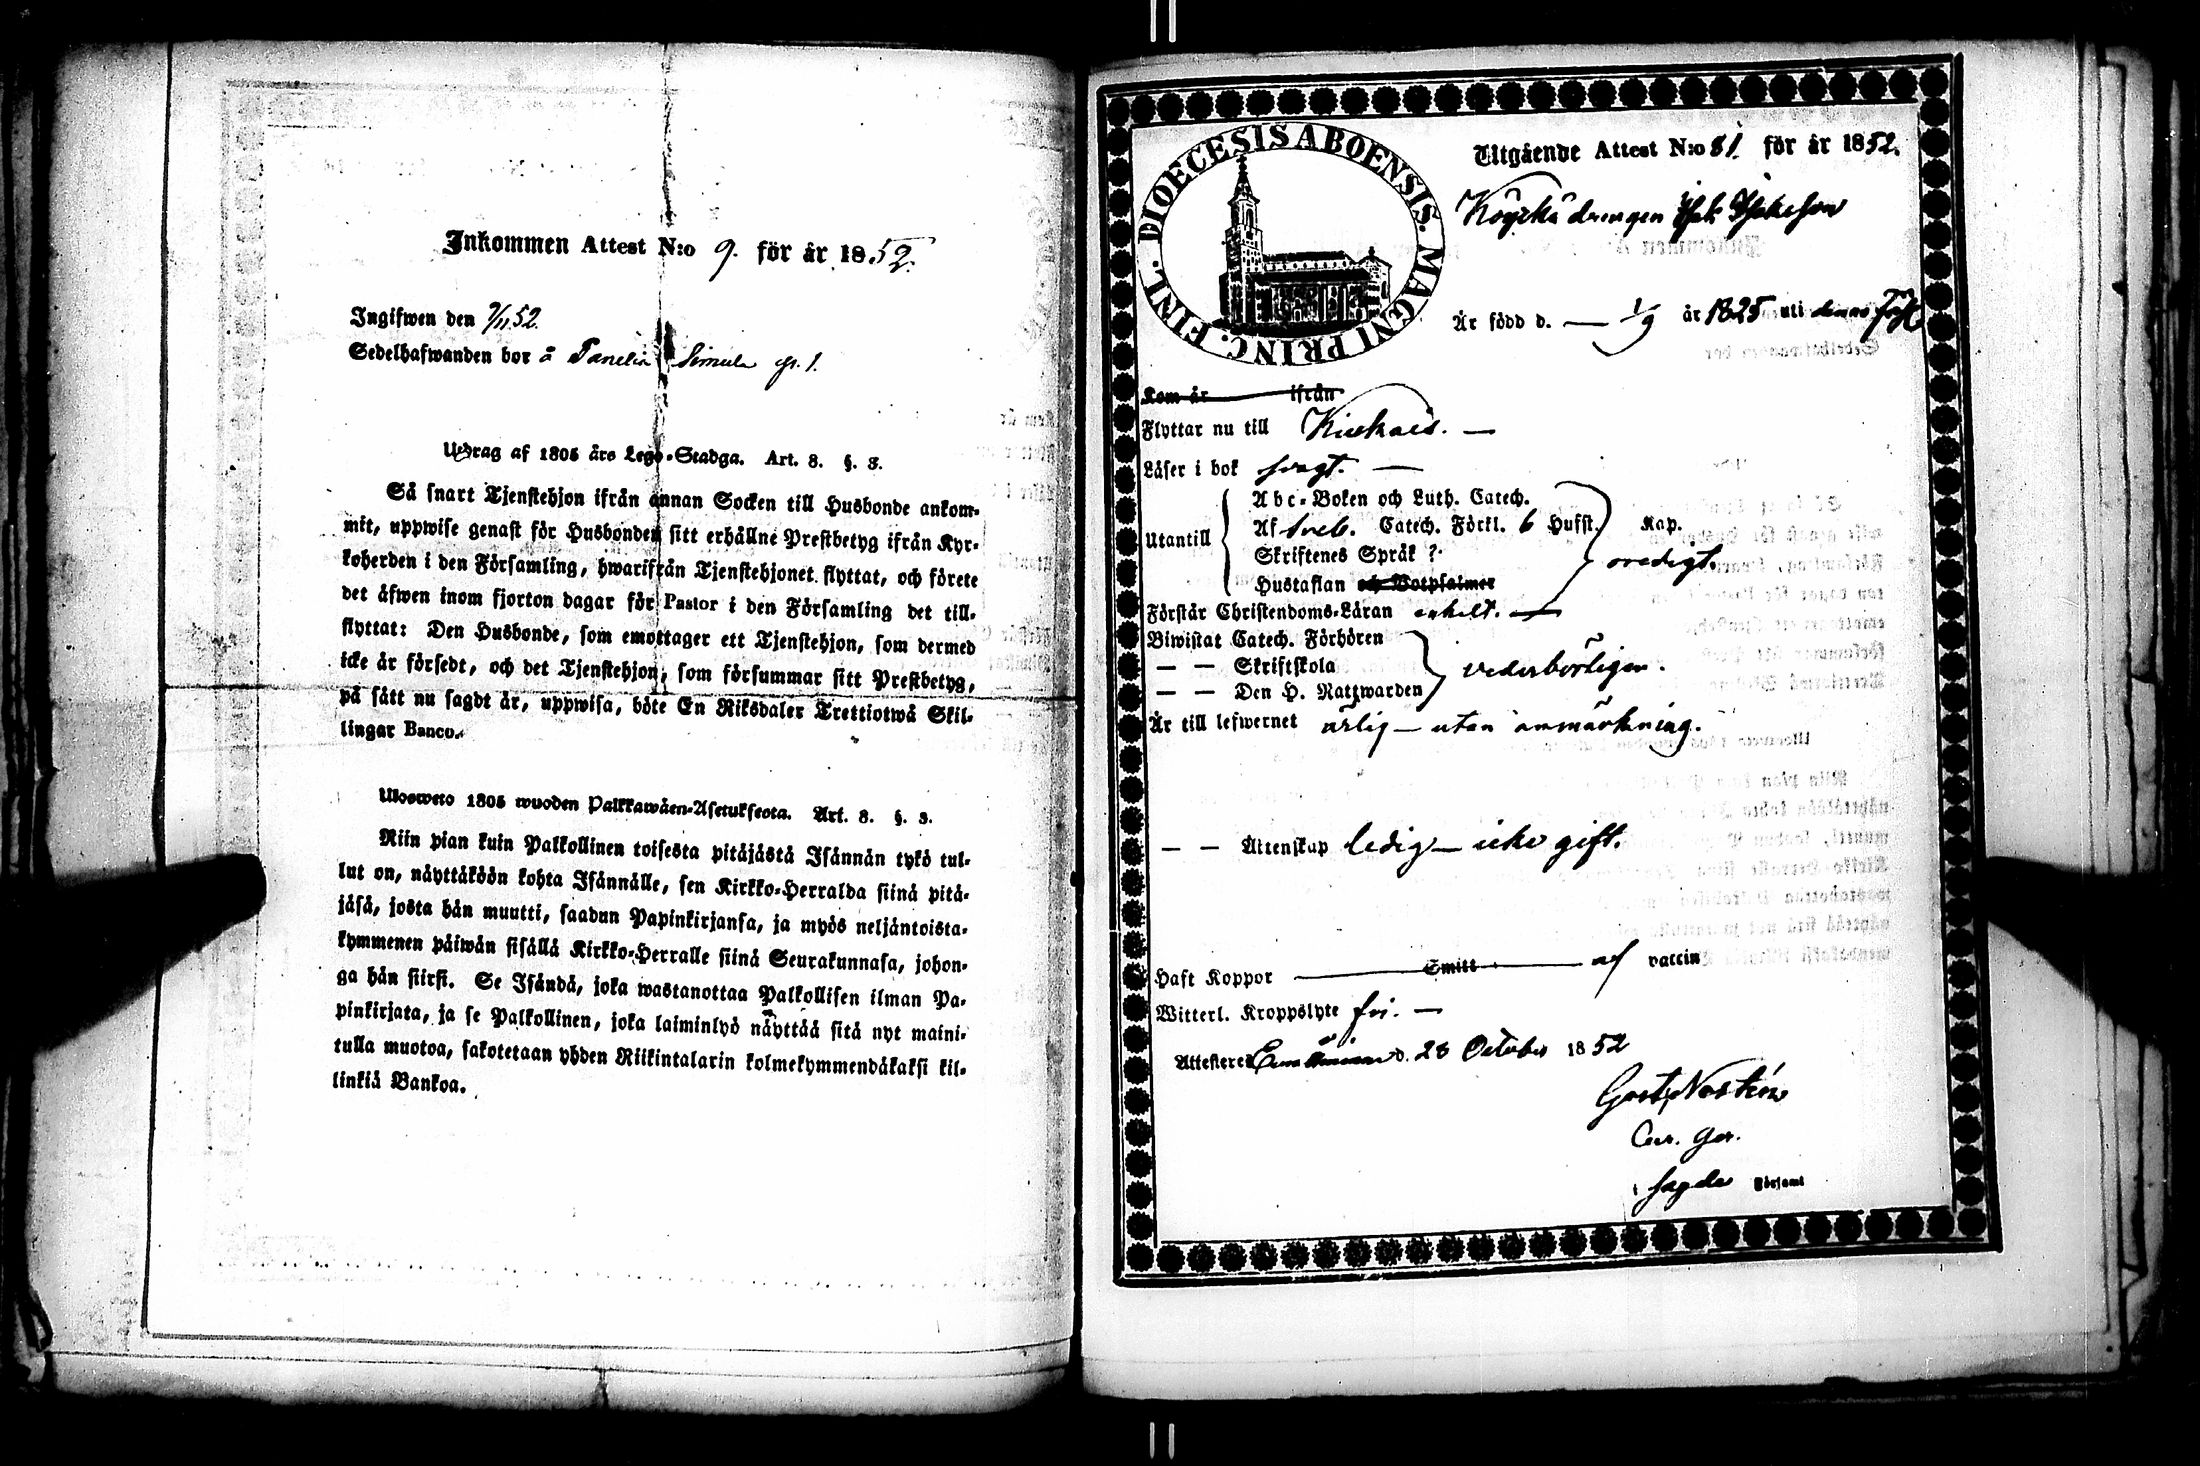 Inkommen Attest N:o 9. för år 1852.
Ingifwen den 7/11 52.
Sedelhafwanden bor å Tanelia Simula
Utdrag af 1805 års Lego-Stadga. Art. 8. §. 3.
Så snart Tjenstehjon ifrån annan Socken till Husbonde ankom-
mit, uppwise genast för Husbonden sitt erhållne Prestbetyg ifrån Kyr-
koherden i den Församling, hwarifrån Tjenstehjonet flyttat, och förete
det äfwen inom fjorton dagar för Pastor i den Församling det till-
flyttat: Den Husbonde, som emottager ett Tjenstehjon, som dermed
icke är försedt, och det Tjenstehjon, som försummar sitt Prestbetyg,
på sätt nu sagdt är, uppwisa, böte En Riksdaler Trettiotwå Skil-
lingar Banco.
Ulosweto 1805 wuoden Palkkawäen-Asetuksesta. Art. 8. §. 3.
Niin pian kuin Palkollinen toisesta pitäjästä Isännän tykö tul-
lut on, näyttäköön kohta Isännälle, sen Kirkko-Herralda siinä pitä-
jäsä, josta hän muutti, saadun Papinkirjansa, ja myös neljäntoista-
kymmenen päiwän sisällä Kirkko-Herralle siinä Seurakunnasa, johon-
ga hän siirsi. Se Isändä, joka wastanottaa Palkollisen ilman Pa-
pinkirjata, ja se Palkollinen, joka laiminlyö näyttää sitä nyt maini-
tulla muotoa, sakotetaan yhden Riikintalarin kolmekymmendäkaksi kil-
linkiä Bankoa.
DIOECESIS ABOENSIS. MAGNI PRINC. FINL.
Utgående Attest N:o 81. för år 1852.
Köyrkä drengen Isak Isaksson
Är född d. 1/9 år 1825 uti
Kom år ifrån
Flyttar nu till Kiukais.
Läser i bok svagt.
Abc-Boken och Luth. Catech.
Utantill Af Sveb. Catech. Förkl. 6 Hufst. Kap.
Skriftenes Språk ? oredigt.
Hustaflan och Botpsalmer
Förstår Christendoms-Läran enkelt.
Biwistat Catech. Förhören
— — Skriftskola vederbörligen.
— — Den H. Nattwarden
Är till lefwernet ärlig — utan anmärkning.
— — Äktenskap ledig — icke gift.
Haft Koppor Smitt af vaccin
Witterl. Kroppslyte fri.
Attesterer d. 28 October 1852
Gust. Noskén
Cur. Ger.
i sagde Församl